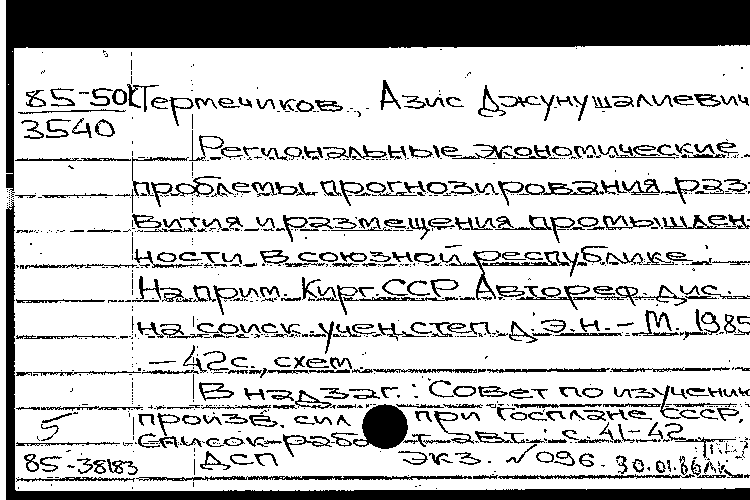 85-50к Термечиков, Азис Джунушалиевич
3540
Региональные экономические
проблемы прогнозирования раз-
вития и размещения промышлен-
ности в союзной республике :
На прим. Кирг.ССР Автореф. дис.
на соиск. учен. степ. д.э.н. – М., 1985
. – 42с., схем.
В надзаг. : Совет по изучению
5 произв. сил при Госплане СССР,
Список работ авт. : с 41-42
85-38183 ДСП экз. №096. 30.01.86